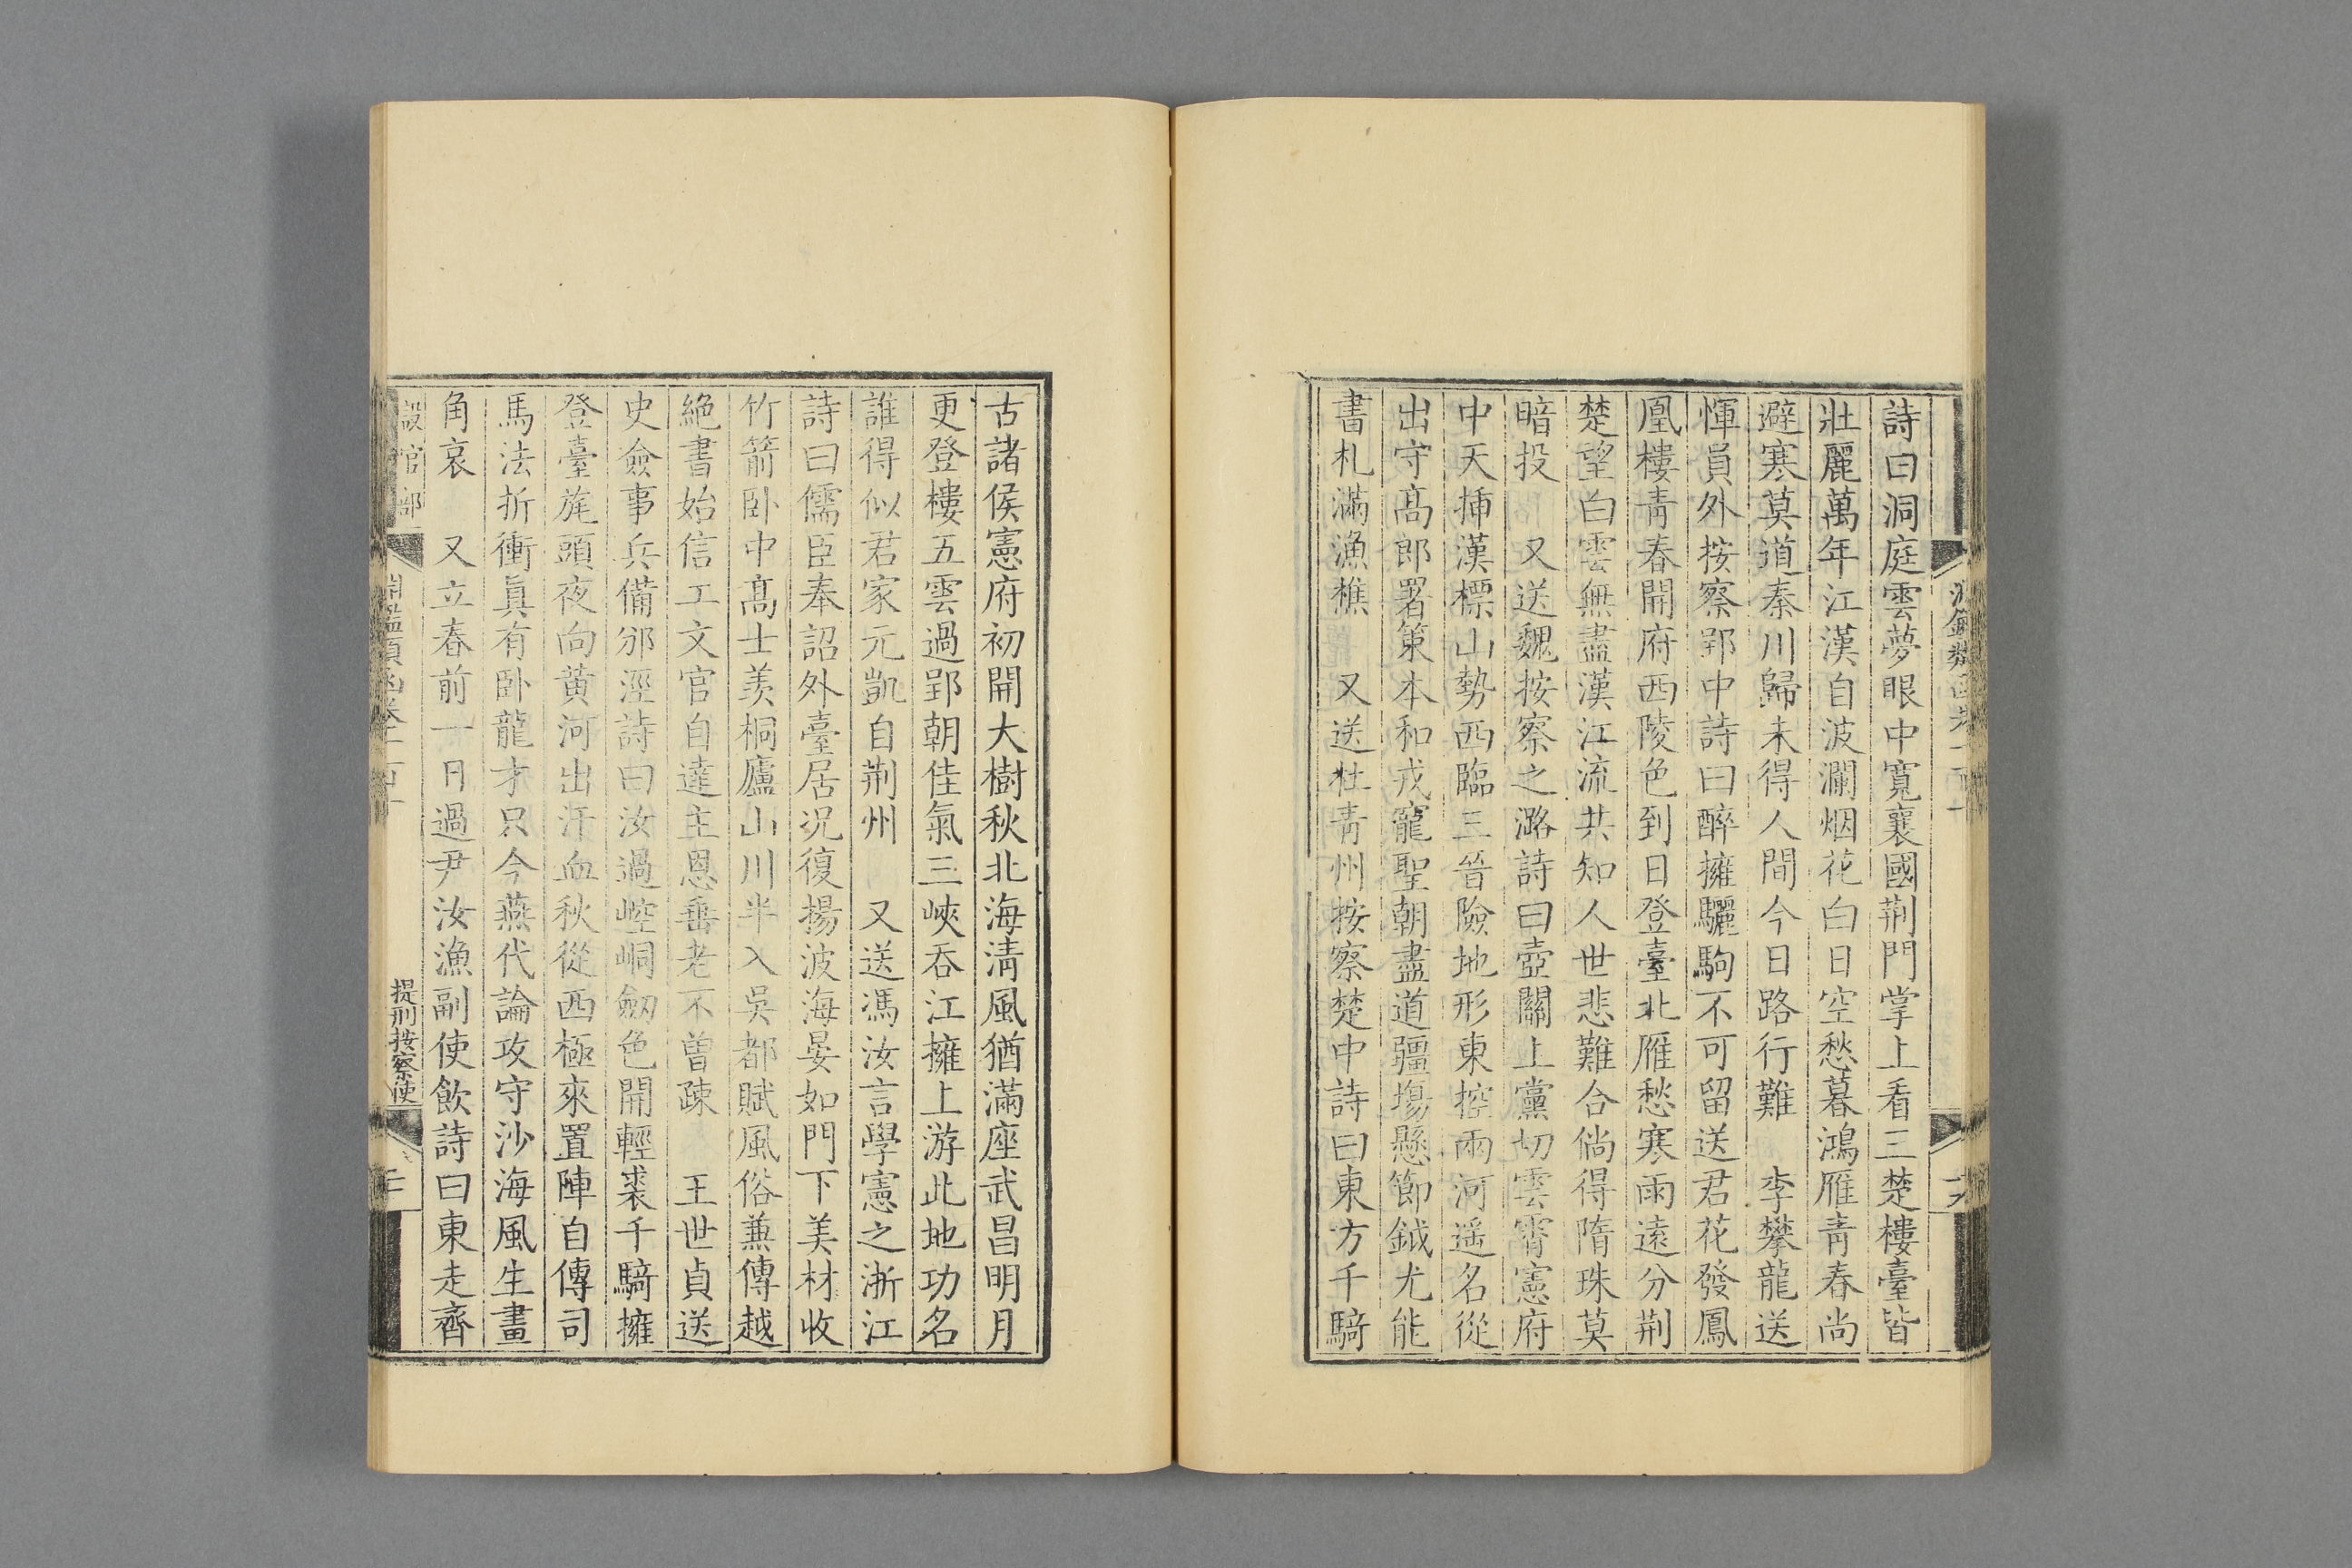 詩曰洞庭雲夢眼中寬襄國荆門掌上看三楚樓臺皆
壯麗萬年江漢自波瀾烟花白日空愁暮鴻雁青春尚
避寒莫道秦川歸未得人間今日路行難　李攀龍送
惲員外按察郢中詩曰醉擁驪駒不可留送君花發鳳
凰樓青春開府西陵色到日登臺北雁愁寒雨遠分荆
楚望白雲無盡漢江流共知人世悲難合倘得隋珠莫
暗投　又送魏按察之潞詩曰壺關上黨切雲霄憲府
中天揷漢標山勢西臨三晉險地形東控兩河遥名從
出守髙郎署策本和戎寵聖朝盡道疆塲懸節鉞尤能
書札滿漁樵　又送杜青州按察楚中詩曰東方千騎
古諸侯憲府初開大樹秋北海淸風猶滿座武昌明月
更登樓五雲過郢朝佳氣三峽吞江擁上游此地功名
誰得似君家元凱自荆州　又送馮汝言學憲之浙江
詩曰儒臣奉詔外臺居况復揚波海晏如門下美材收
竹箭卧中髙士羡桐廬山川半入吳都賦風俗兼傳越
絶書始信工文官自達主恩垂老不曾疎　王世貞送
史僉事兵備邠涇詩曰汝過崆峒劒色開輕裘千騎擁
登臺旄頭夜向黄河出汗血秋從西極來置陣自傳司
馬法折衝眞有卧龍才只今燕代論攻守沙海風生畫
角哀　又立春前一日過尹汝漁副使飮詩曰東走齊
設官部
淵鑑類函卷一百十
提刑按察使
二十